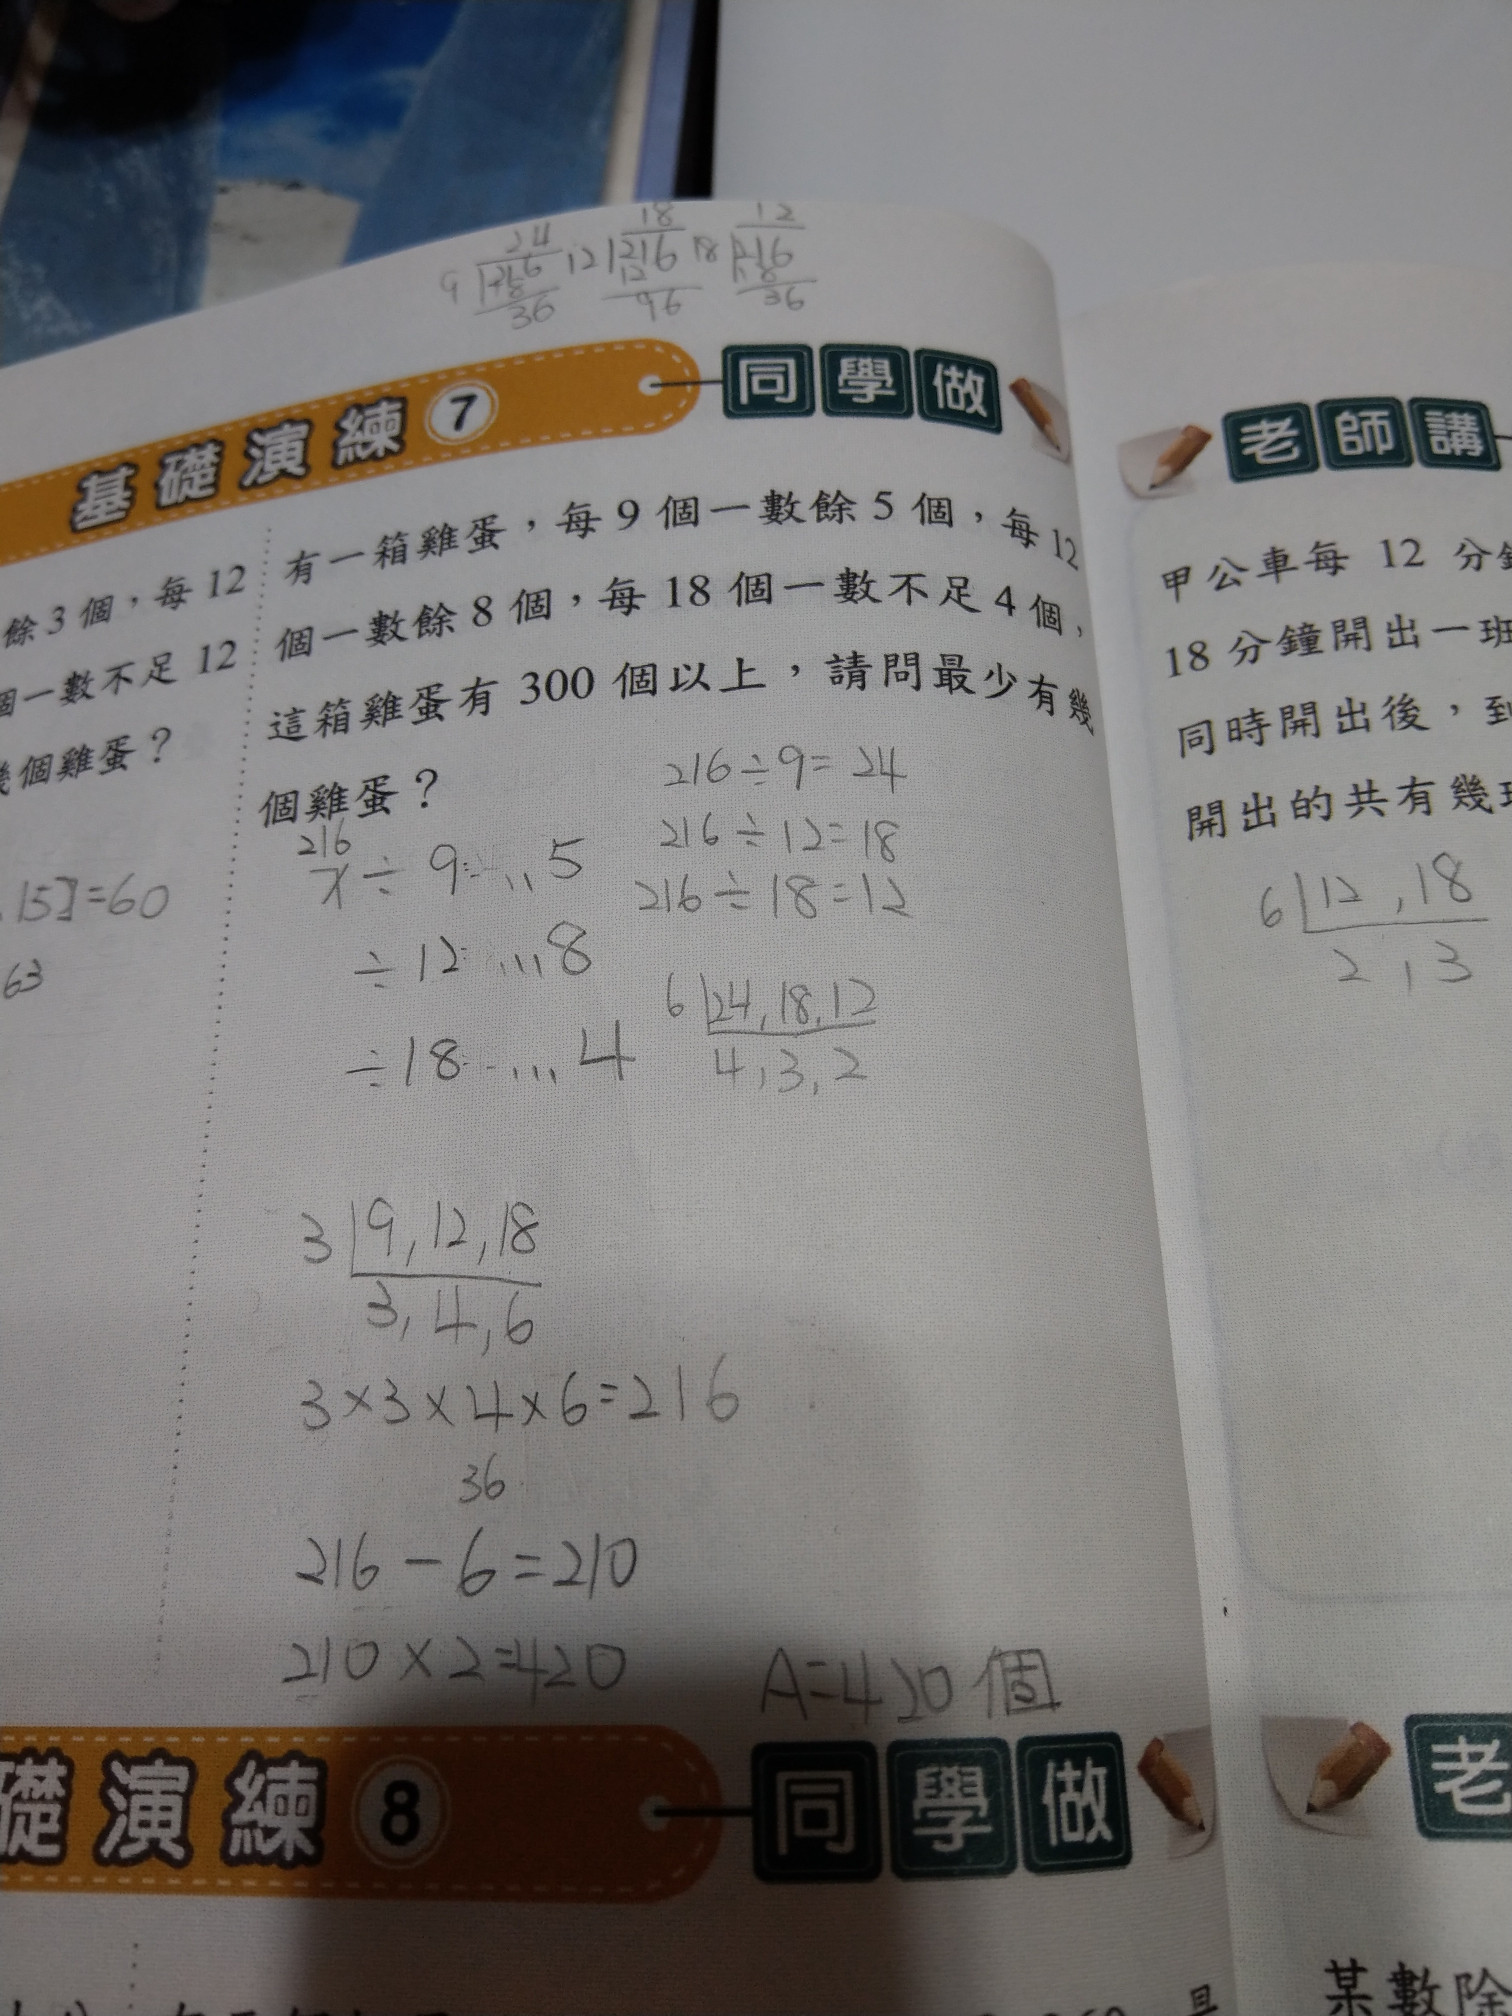 24 18 12
9 216 12 216 18 216
18 12 18
36 96 36
基礎演練 7 同學做
有一箱雞蛋，每9個一數餘5個，每12
個一數餘8個，每18個一數不足4個，
這箱雞蛋有300個以上，請問最少有幾
個雞蛋？
216÷9=24
216
x÷9…5
216÷12=18
216÷18=12
÷12…8
÷18…4
6 24,18,12
4,3,2
3 9,12,18
3,4,6
3×3×4×6=216
36
216-6=210
210×2=420
A=420個
餘3個，每12
個一數不足12
幾個雞蛋？
15]=60
63
礎演練 8 同學做
老師講
甲公車每 12 分鐘
18分鐘開出一班
同時開出後，到
開出的共有幾班
6 12,18
2,3
老
某數除